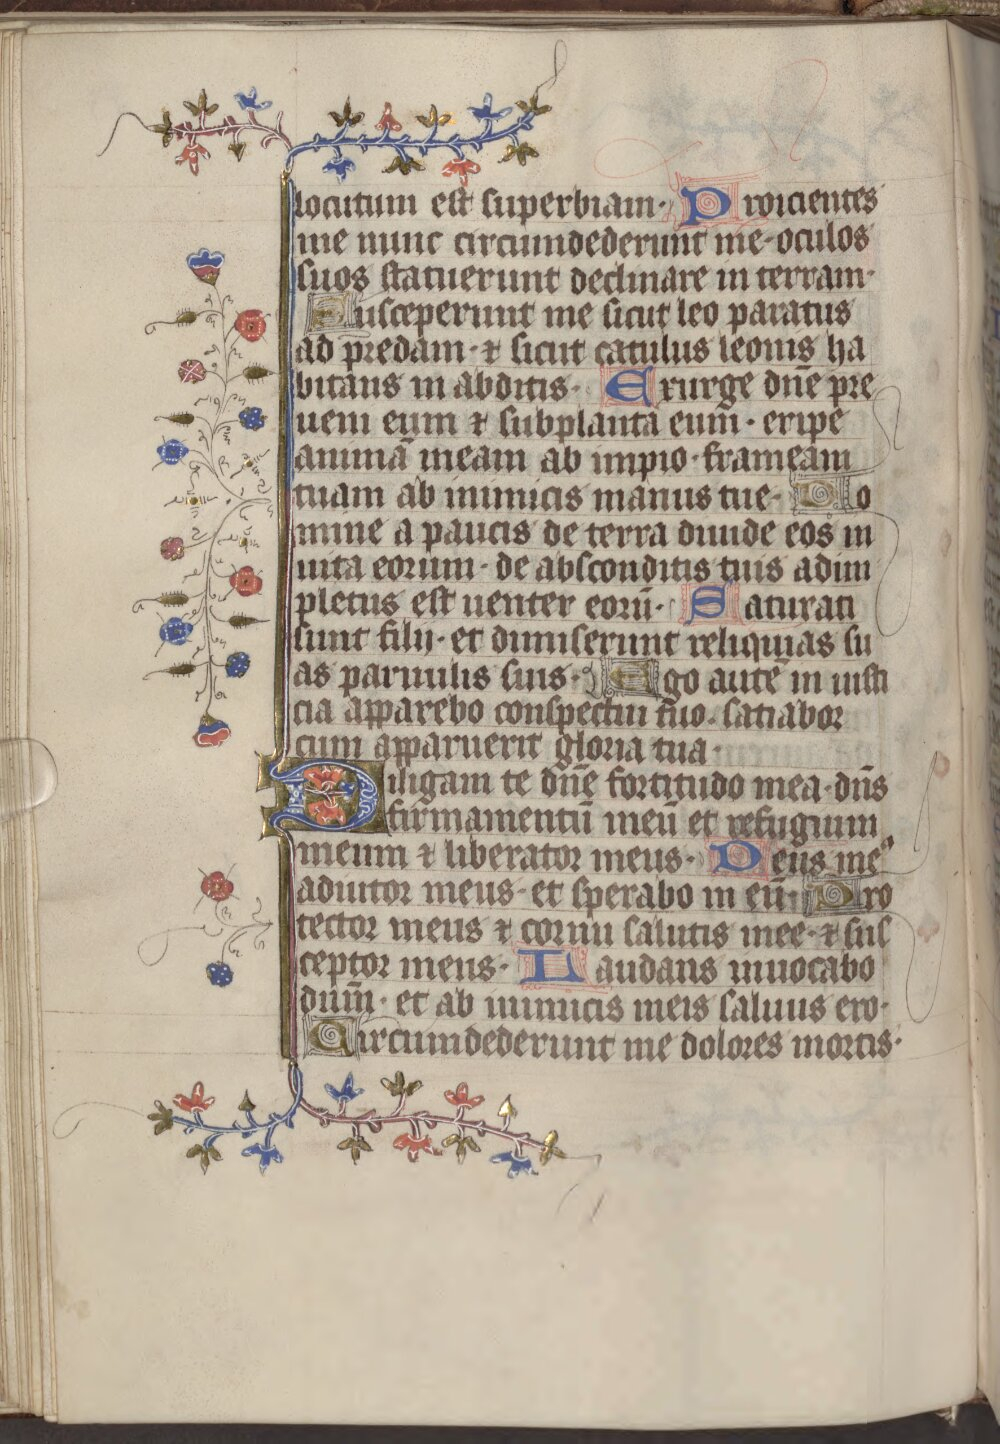 locutum est superbiam· Proicientes
me nunc circumdederunt me·oculos
suos statuerunt declinare in terram·
Susceperunt me sicut leo paratus
ad predam· ⁊ sicut catulus leonis ha
bitans in abditis· Exurge dn̄e pre
ueni eum ⁊ subplanta eum̄· eripe
animā meam ab impio·frameam
tuam ab inimicis manus tue· Do
mine a paucis de terra diuide eos in
uita eorum· de absconditis tuis adim
pletus est uenter eorū· Saturati
sunt filij·et dimiserunt reliquias su
as paruulis suis· Ego autē in iusti
cia apparebo conspectui tuo·satiabor
cum apparuerit gloria tua·
Diligam te dn̄e fortitudo mea·dn̄s
firmamentū meū et refugium
meum ⁊ liberator meus· Deus me⁹
adiutor meus·et sperabo in eū· Pro
tector meus ⁊ cornu salutis mee·⁊ sus
ceptor meus· Laudans inuocabo
dn̄m̄·et ab inimicis meis saluus ero·
Circumdederunt me dolores mortis·